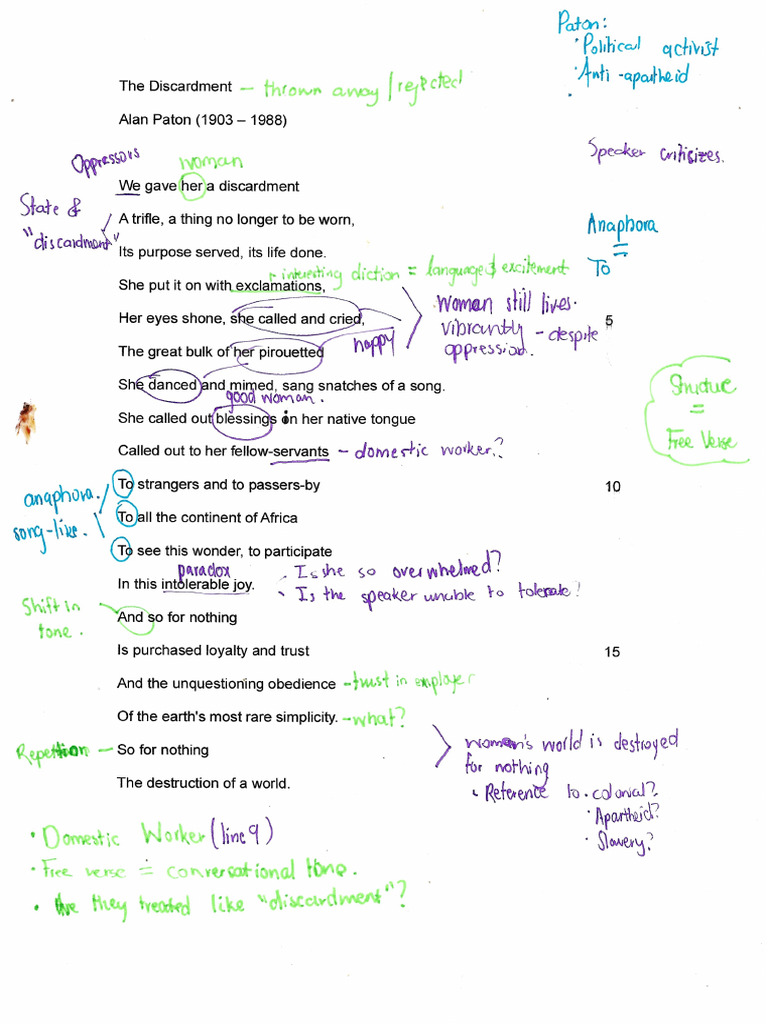 Paton:
· Political activist
· Anti-apartheid
The Discardment – thrown away/rejected
Alan Paton (1903 – 1988)
Speaker critisizes.
Oppressors
woman
We gave her a discardment
State &
"discardment"
A trifle, a thing no longer to be worn,
Anaphora
=
To
Its purpose served, its life done.
· interesting diction = language & excitement
She put it on with exclamations,
Her eyes shone, she called and cried,
5
woman still lives.
vibrantly – despite
oppression.
happy
The great bulk of her pirouetted
She danced and mimed, sang snatches of a song.
good woman.
She called out blessings in her native tongue
Structure
=
Free Verse
Called out to her fellow-servants – domestic worker?
anaphora.
song-like.
To strangers and to passers-by
10
To all the continent of Africa
To see this wonder, to participate
paradox
In this intolerable joy.
· Is she so overwhelmed?
· Is the speaker unable to tolerate?
Shift in
tone.
And so for nothing
Is purchased loyalty and trust
15
And the unquestioning obedience – trust in employer
Of the earth's most rare simplicity. – what?
Repetition – So for nothing
The destruction of a world.
woman's world is destroyed
for nothing
· Reference to · colonial?
· Apartheid?
· Slavery?
· Domestic Worker (line 9)
· Free verse = conversational tone.
· Are they treated like "discardment"?